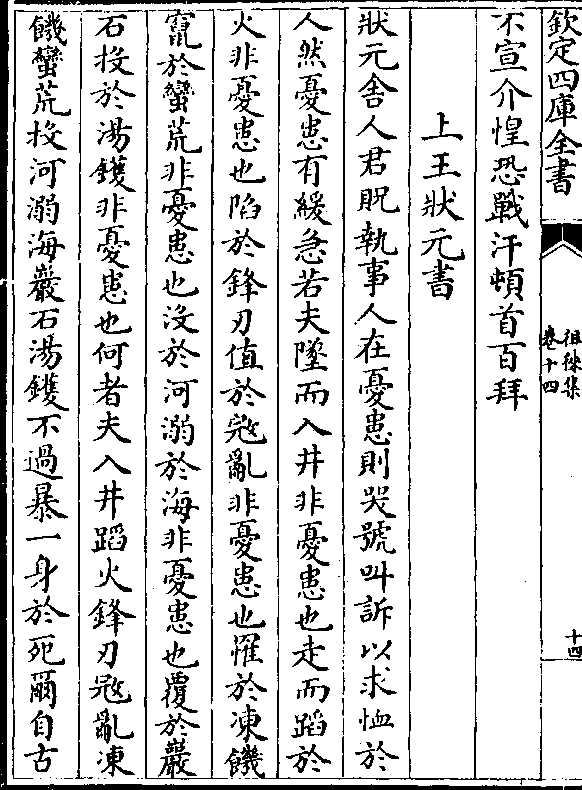 欽定四庫全書
徂徠集
卷十四
十四
不宣介惶恐戰汗頓首百拜
上王狀元書
狀元舎人君貺執事人在憂患則哭號呌訴以求恤於
人然憂患有緩急若夫墜而入井非憂患也走而蹈於
火非憂患也陷於鋒刃值於㓂亂非憂患也罹於凍饑
竄於蠻荒非憂患也没於河溺於海非憂患也覆於巖
石投於湯鑊非憂患也何者夫入井蹈火鋒刃㓂亂凍
饑蠻荒投河溺海巖石湯鑊不過暴一身於死爾自古